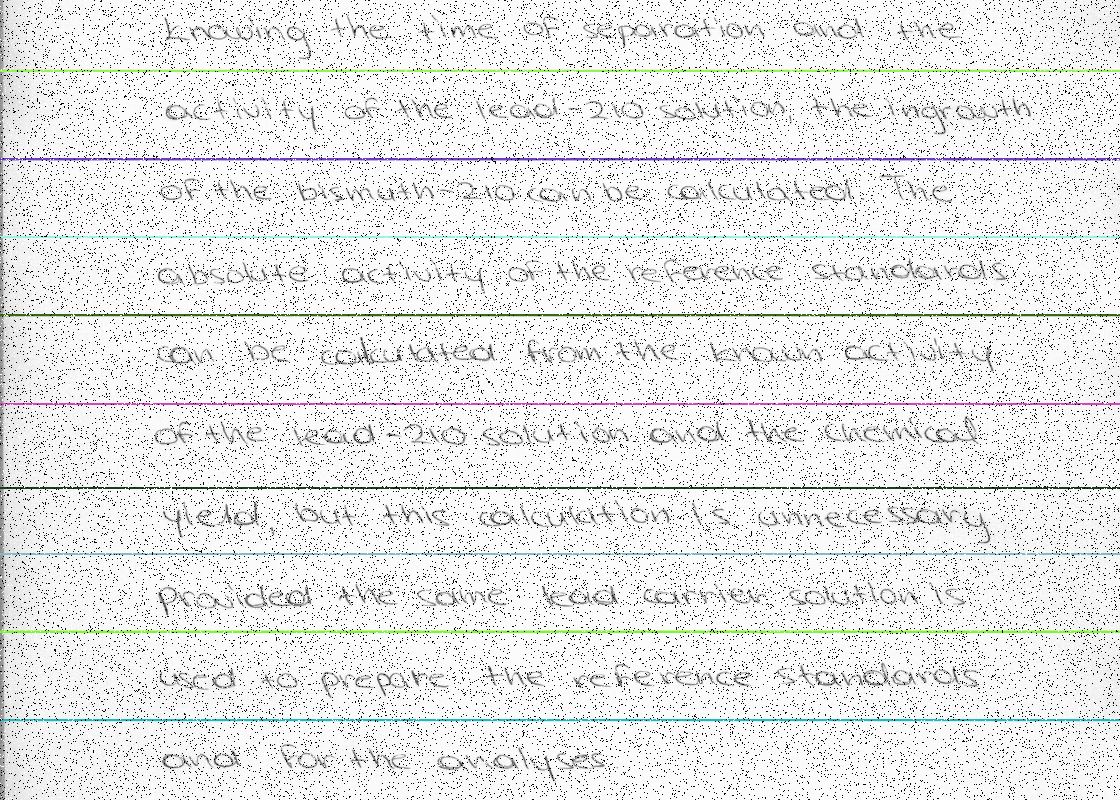 knowing the time of separation and the
activity of the lead-210 solution, the ingrowth
of the bismuth-210 can be calculated. The
absolute activity of the reference standards
can be calculated from the known activity
of the lead-210 solution and the chemical
yield, but this calculation is unnecessary
provided the same lead carrier solution is
used to prepare the reference standards
and for the analyses